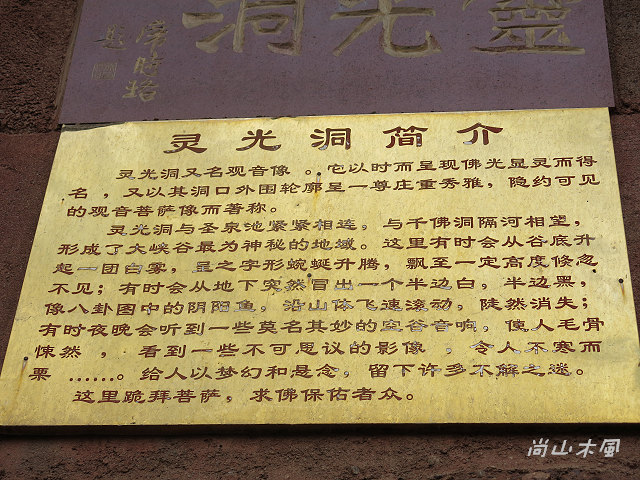 靈光洞
灵光洞简介
灵光洞又名观音像 。它以时而呈现佛光显灵而得
名 ，又以其洞口外围轮廓呈一尊庄重秀雅，隐约可见
的观音菩萨像而著称。
灵光洞与圣泉池紧紧相连，与千佛洞隔河相望，
形成了大峡谷最为神秘的地域。这里有时会从谷底升
起一团白雾，呈之字形蜿蜒升腾，飘至一定高度倏忽
不见；有时会从地下突然冒出一个半边白，半边黑，
像八卦图中的阴阳鱼，沿山体飞速滚动，陡然消失；
有时夜晚会听到一些莫名其妙的空谷音响，使人毛骨
悚然 ，看到一些不可思议的影像 ，令人不寒而
栗 ......。给人以梦幻和悬念，留下许多不解之迷。
这里跪拜菩萨，求佛保佑者众。
尚山木風